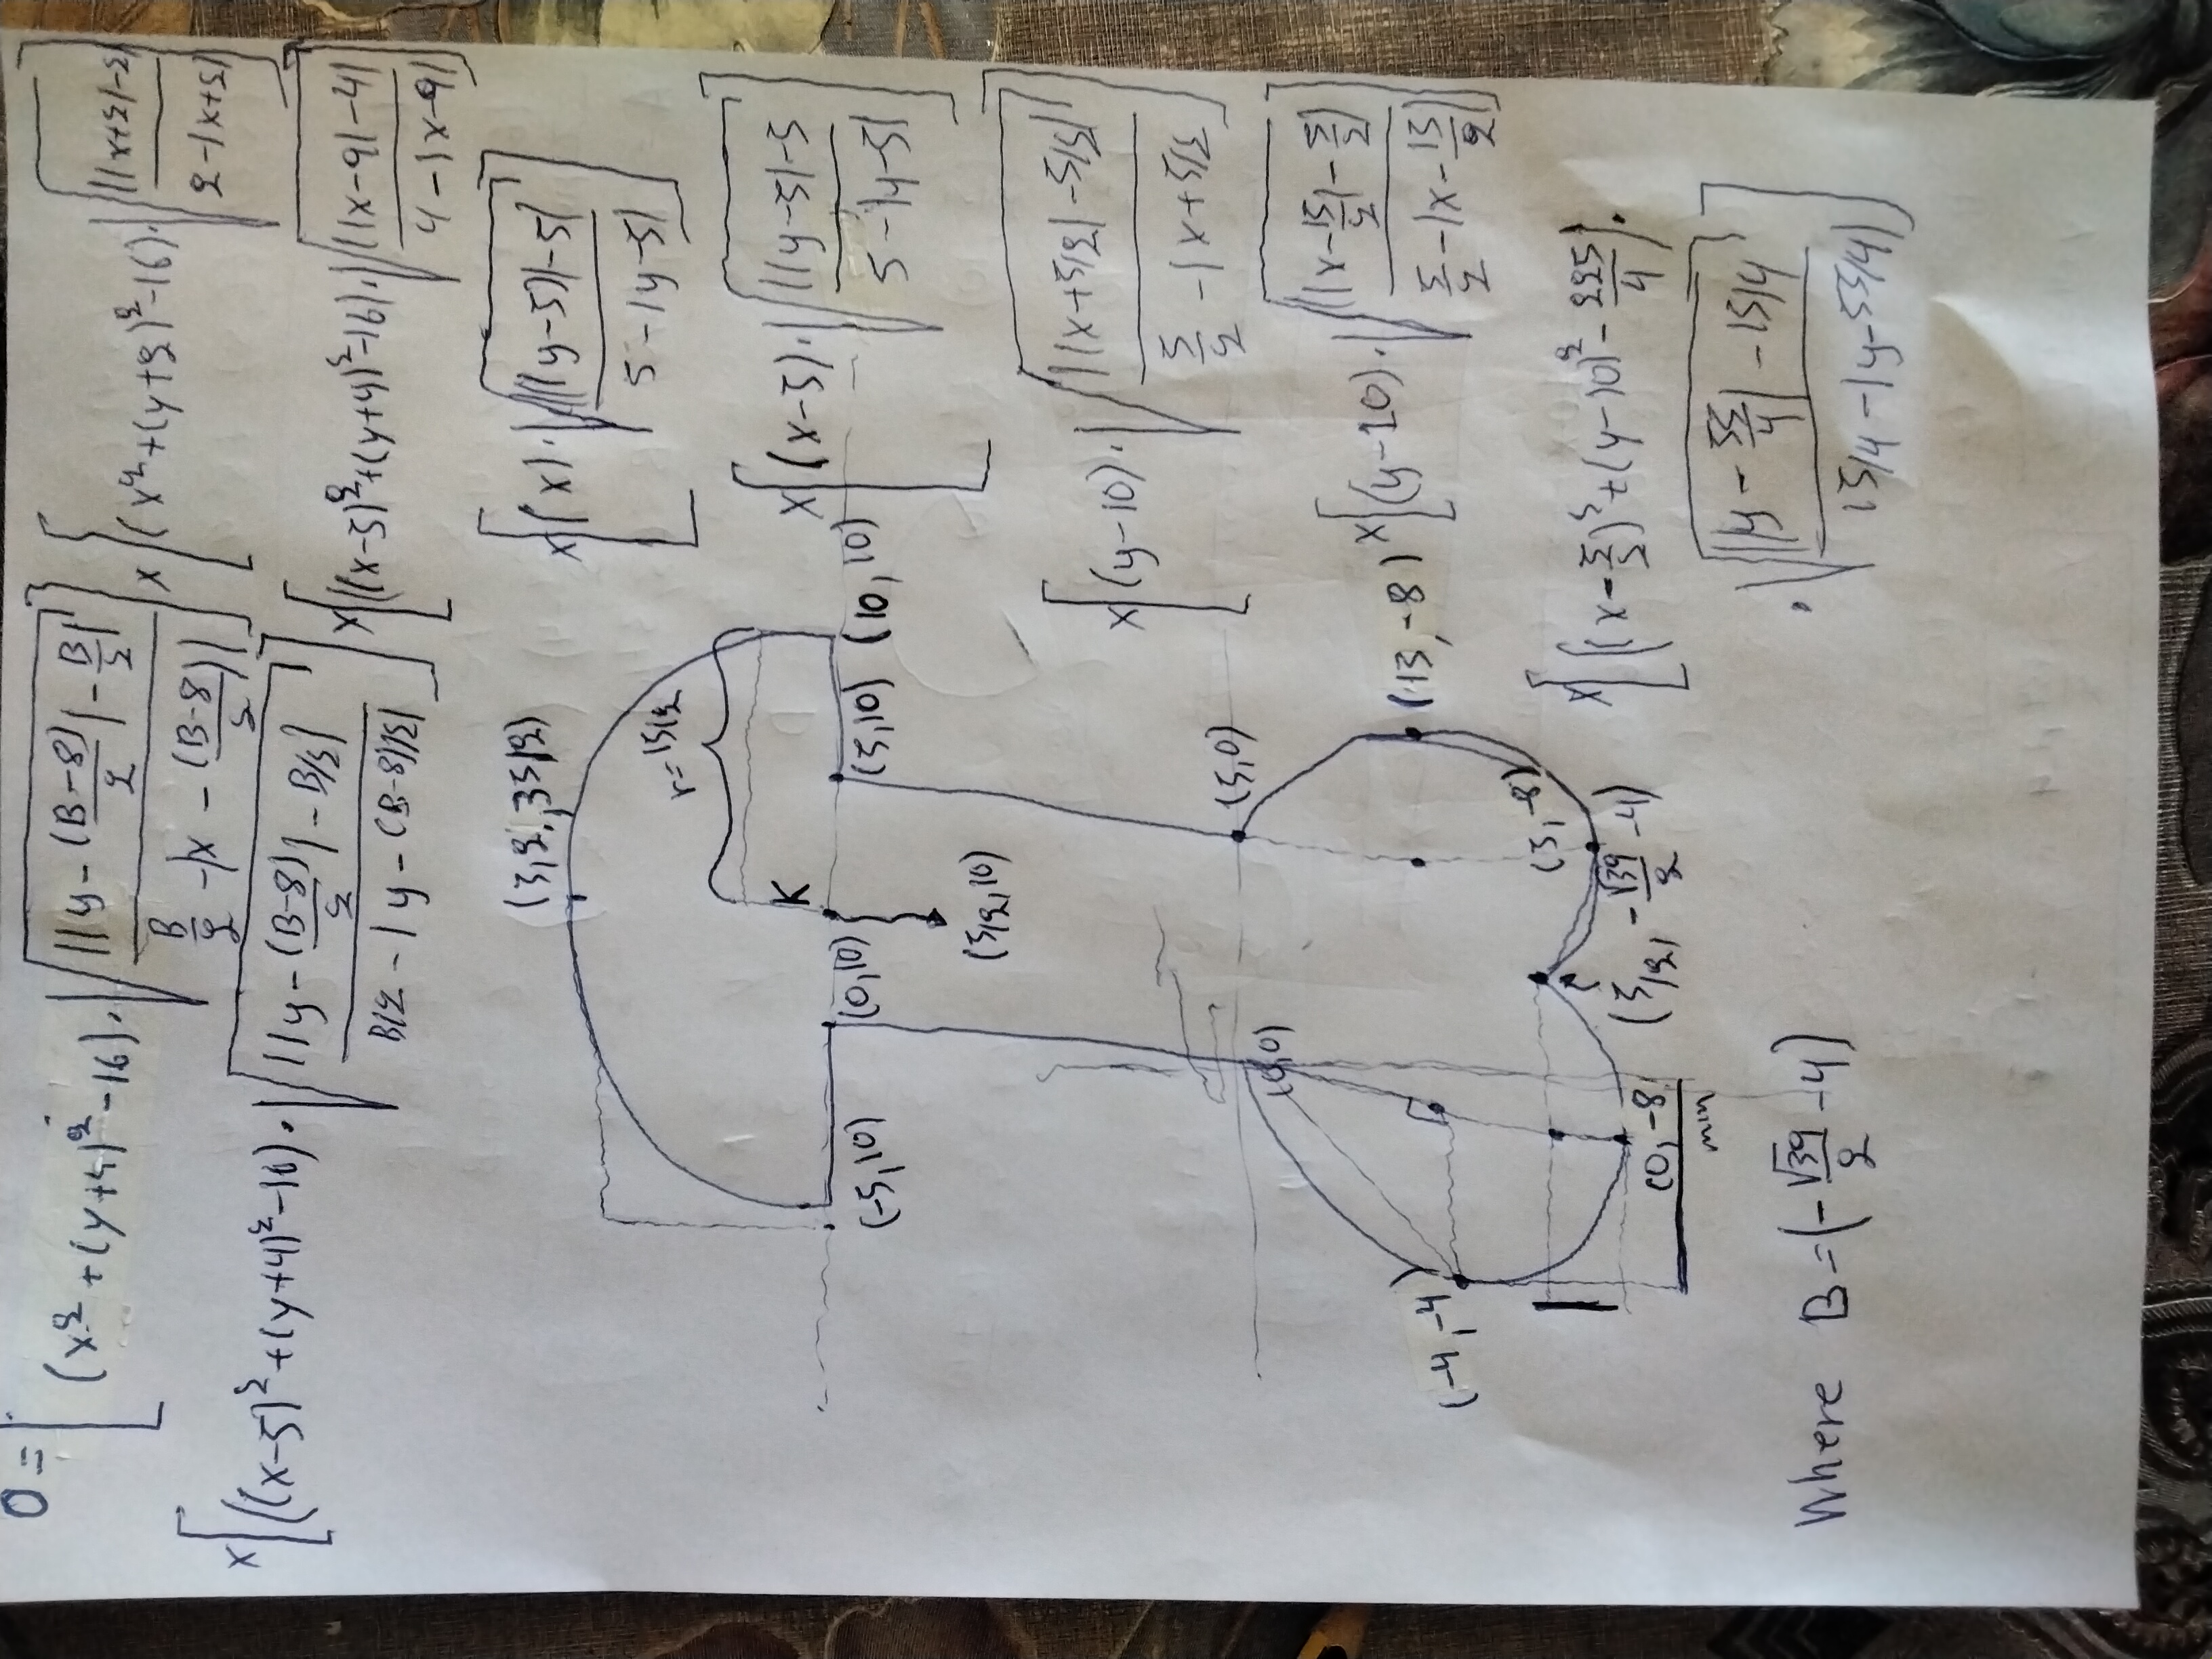 0 = [(x² + (y+4)² - 16) · √(||y - (B-8)/2| - B/2| / B/2 - |x - (B-8)/2|)]
x [(x² + (y+2)² - 16) · √(||x+2|-2| / 2-|x+2|)]
x [((x-5)² + (y+4)² - 16) · √(||y - (B-8)/2| - B/2| / B/2 - |y - (B-8)/2|)]
x [((x-5)² + (y+4)² - 16) · √(||x-9|-4| / 4-|x-9|)]
x [(x) · √(||y-5|-5| / 5-|y-5|)]
x [(x-5) · √(||y-5|-5 / 5-|y-5|)]
x [(y-10) · √(||x+5/2|-5/2| / 5/2 - |x+5/2|)]
x [(y-10) · √(||x-15/2| - 5/2| / 5/2 - |x - 15/2|)]
x [((x - 5/2)² + (y-10)² - 225/4) ·
· √(||y - 55/4| - 15/4 / 15/4 - |y-55/4|)]
(5/2, 35/2)
r=15/2
K
(-5,10)
(0,10)
(5,10)
(10,10)
(5/2,10)
(0,0)
(5,0)
(-4,-4)
(13,-8)
(5,-8)
(0,-8
min
(5/2, -√39/2 -4)
Where B = (-√39/2 -4)